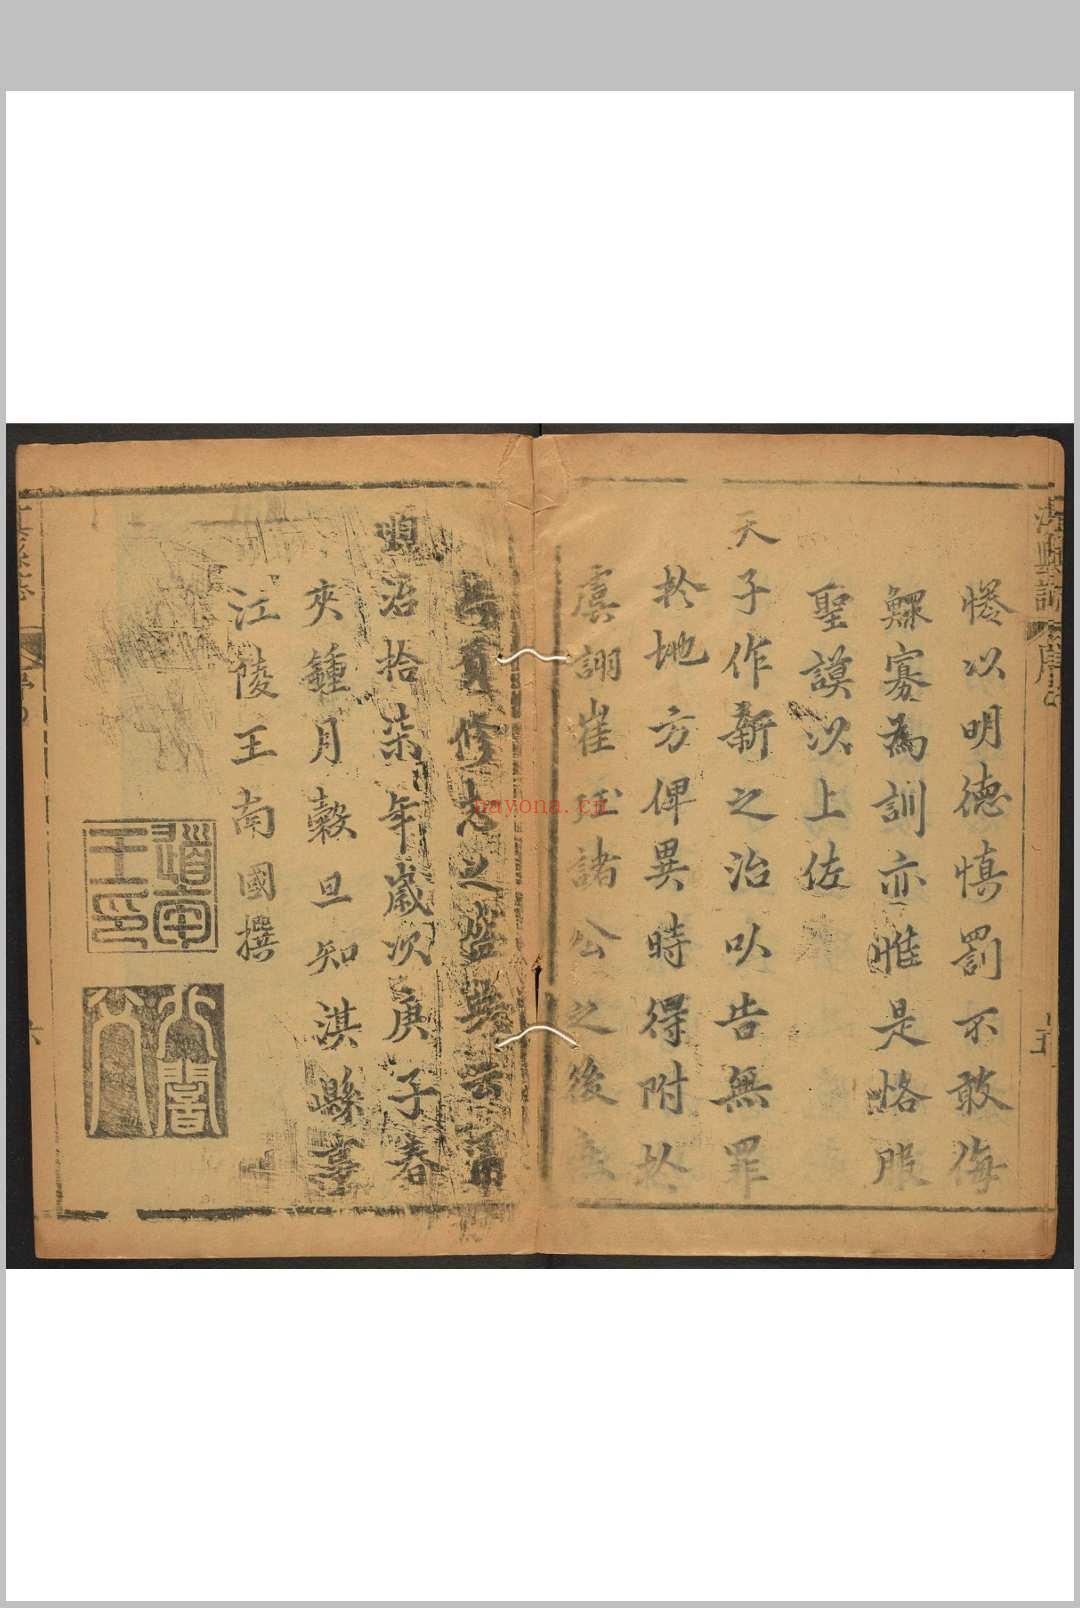 惓以明德慎罰不敢侮
鰥寡為訓亦惟是恪服
聖謨以上佐
天子作新之治以告無罪
於地方俾異時得附於
虞詡崔諸公之後
修志之盛
順治拾柒年歲次庚子春
夾鍾月穀旦知淇縣事
江陵王南國撰
nayona.cn